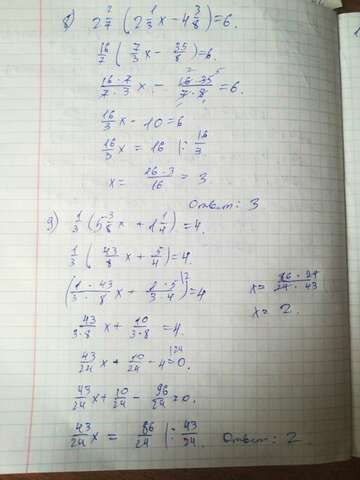 8) 2 2/7 (2 1/3 x - 4 3/8) = 6.
16/7 (7/3 x - 35/8) = 6.
16·7/7·3 x - 16·35/7·8 = 6.
16/3 x - 10 = 6
16/3 x = 16 |: 16/3
x = 16·3/16 = 3
Ответ: 3
9) 1/3 (5 3/8 x + 1 1/4) = 4.
1/3 (43/8 x + 5/4) = 4.
(1·43/3·8 x + 1·5/3·4) = 4
43/3·8 x + 10/3·8 = 4.
43/24 x + 10/24 - 4 = 0.
43/24 x + 10/24 - 96/24 = 0.
43/24 x = 86/24 |: 43/24
x = 86·24/24·43
x = 2.
Ответ: 2